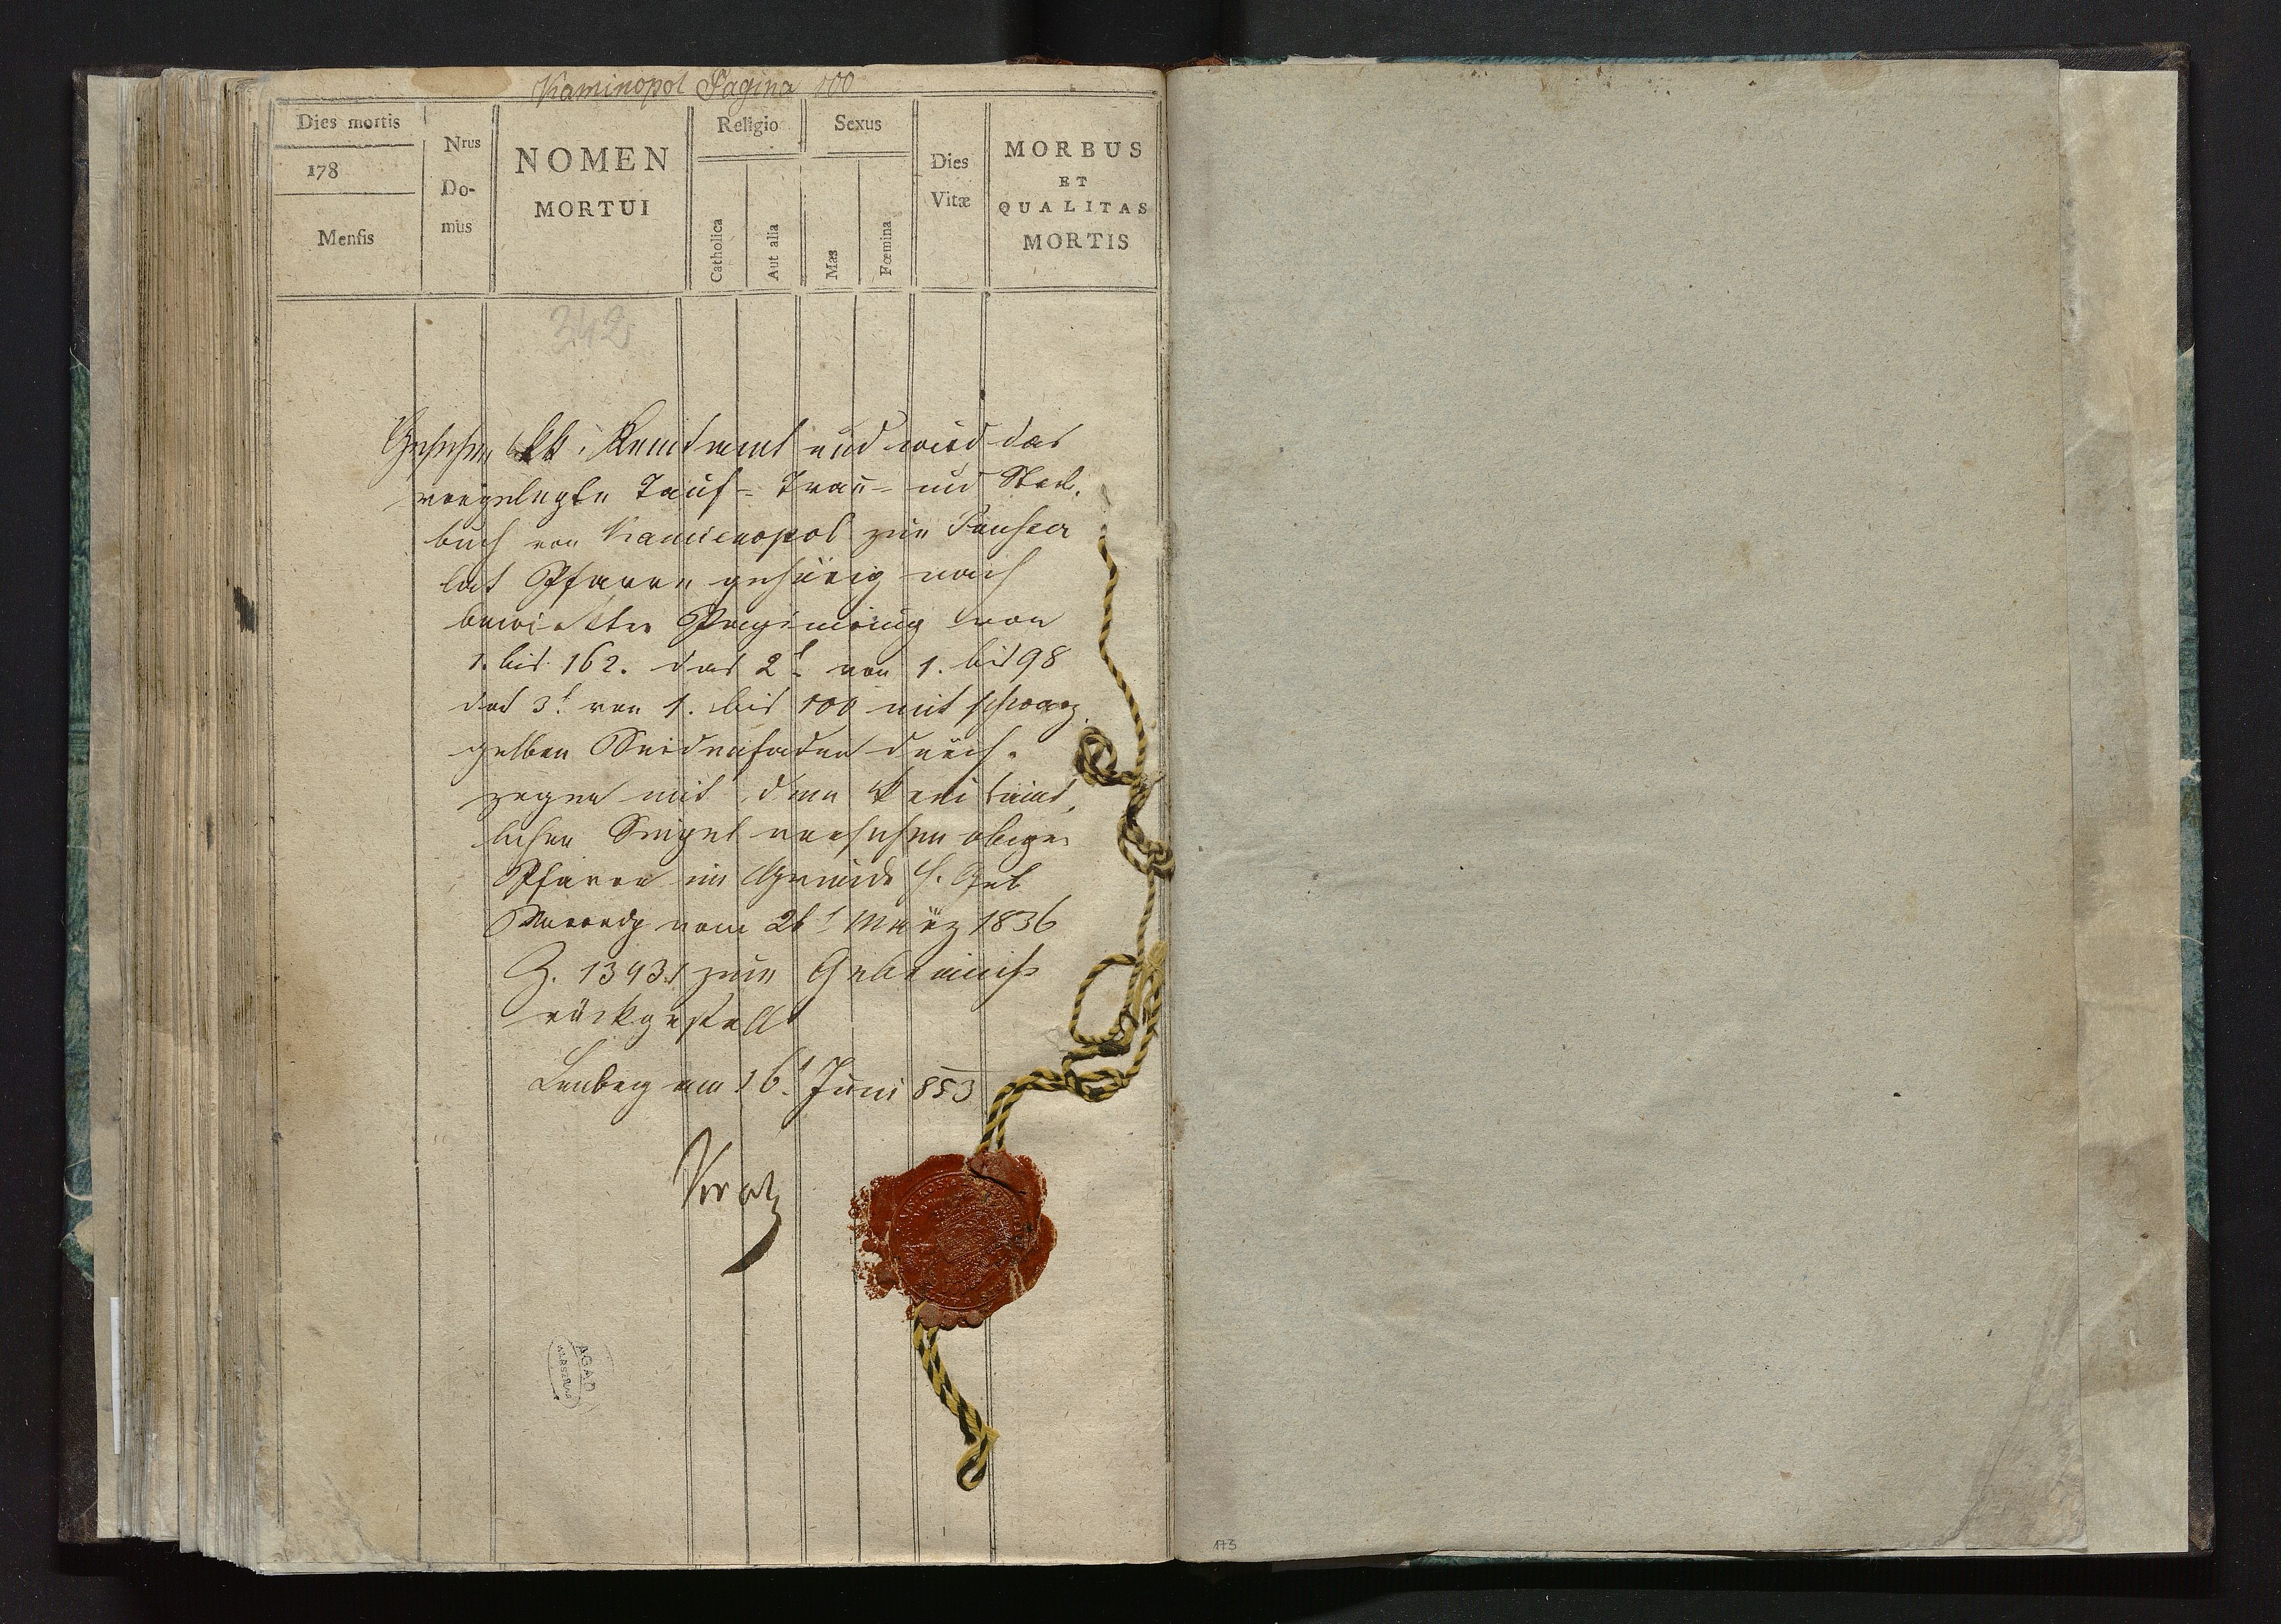 Kaminopol Pagina 100
Dies mortis
178
Mensis
Nrus
Do-
mus
NOMEN
MORTUI
Religio
Catholica
Aut alia
Sexus
Mas
Fœmina
Dies
Vitæ
MORBUS
ET
QUALITAS
MORTIS
342
Gesehen und wird das
vorgelegte Tauf- Trau- und Sterb-
buch von Kamienopol zur
lat Pfarre gehörig nach
bewirkter Paginirung von
1. bis 162. das 2t von 1. bis 98
das 3t von 1. bis 100 mit schwarz
gelben Seidenfaden durch-
zogen mit dem
lichen Siegel versehen obiger
Pfarre im Grunde h. Gub
Verordg vom 26t März 1836
Z. 13931 zum Gebrauche
rückgestellt
Lemberg am 16t Juni 853
AGAD
WARSZAWA
173